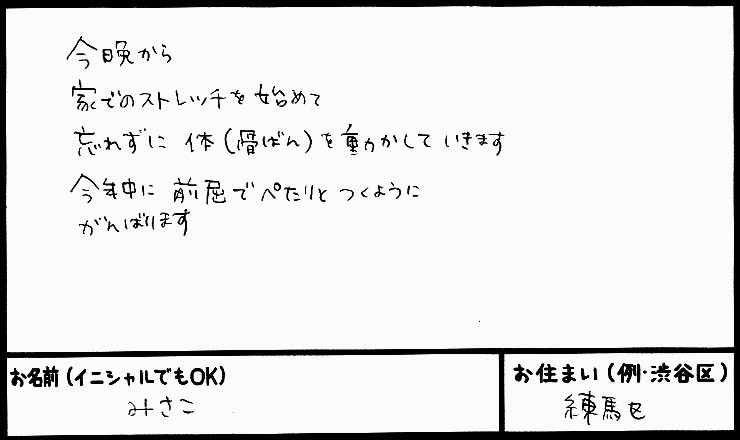 今晩から
家でのストレッチを始めて
忘れずに 体(骨ばん)を動かしていきます
今年中に 前屈でぺたりと つくように
がんばります
お名前(イニシャルでもOK)
みさこ
お住まい(例・渋谷区)
練馬区